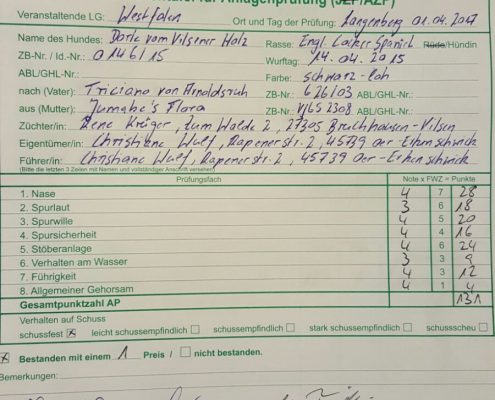 für Anlagenprüfung (JEP/AZP)
Veranstaltende LG: Westfalen
Ort und Tag der Prüfung: Langenberg 01.04.2017
Name des Hundes: Dorle vom Vilsener Holz Rasse: Engl. Cocker Spaniel Rüde/Hündin
ZB-Nr. / Id.-Nr.: 0146/15 Wurftag: 14.04.2015
ABL/GHL-Nr.: Farbe: schwarz-loh
nach (Vater): Triciano von Arnoldsruh ZB-Nr. 626/03 ABL/GHL-Nr.:
aus (Mutter): Jumabe's Flora ZB-Nr. VJ6S 2308 ABL/GHL-Nr.:
Züchter/in: Rene Krüger, Zum Walde 2, 27305 Bruchhausen-Vilsen
Eigentümer/in: Christiane Wulf, Rapenerstr. 2, 45739 Oer-Erkenschwick
Führer/in: Christiane Wulf, Rapenerstr. 2, 45739 Oer-Erkenschwick
(Bitte die letzten 3 Zeilen mit Namen und vollständiger Anschrift versehen)
Prüfungsfach Note x FWZ = Punkte
1. Nase 4 7 28
2. Spurlaut 3 6 18
3. Spurwille 4 5 20
4. Spursicherheit 4 4 16
5. Stöberanlage 4 6 24
6. Verhalten am Wasser 3 3 9
7. Führigkeit 4 3 12
8. Allgemeiner Gehorsam 4 1 4
Gesamtpunktzahl AP 131
Verhalten auf Schuss
schussfest leicht schussempfindlich schussempfindlich stark schussempfindlich schussscheu
Bestanden mit einem 1 Preis / nicht bestanden.
Bemerkungen: